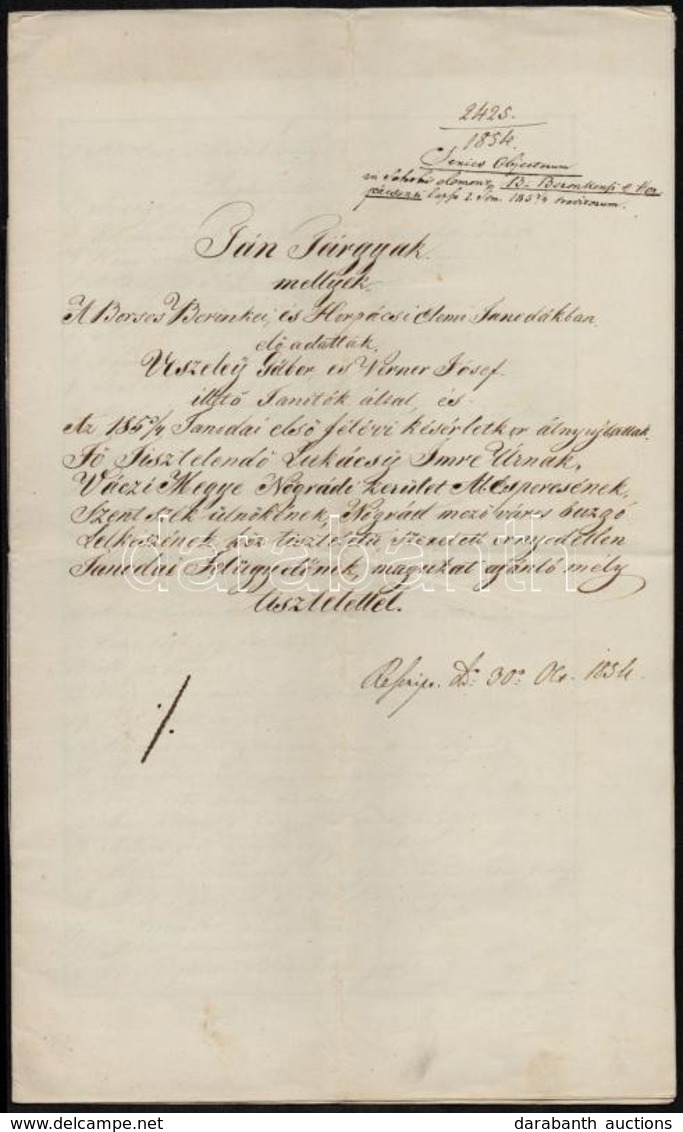 2425.
1854.
Series Objectorum
in Scholis elementar. B. Berenkensi et Hor
pácsensi lapso 2. Sem. 185¾ traditorum.
Tán Tárgyak.
mellyek.
A Borsos Berenkei, és Horpácsi elemi Tanodákban.
elő adattak,
Veszeleÿ Gábor, es Verner Jósef.
illető Tanitók által, és
Az 185¾ Tanodai első félévi kisérletkor átnyujtattak
Fő Tisztelendő Lukácsÿ Imre Úrnak,
Váczi Megye Nógrádi kerület Al Esperesének,
Szent szék ülnökének, Nógrád mező város buzgó
Lelkészének, köz tiszteletü szeretett ernyedetlen
Tanodai Felügyelőnek, magukat ajánló mély
tisztelettel.
30a 1854.
./.
databanth
www.delcampe.net
darabanth auctions